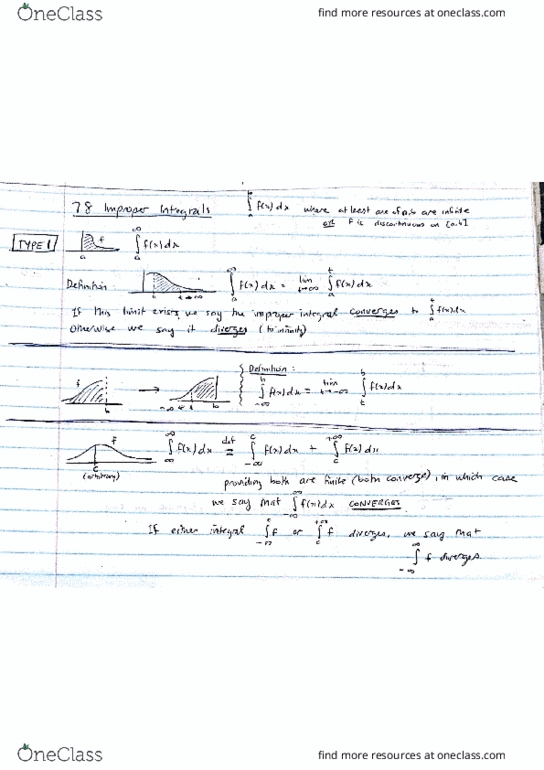 OneClass
find more resources at oneclass.com
7.8 Improper Integrals
∫_a^b f(x)dx where at least one of a, b are infinite
or f is discontinuous on [a,b]
TYPE 1
f
a
∫_a^∞ f(x)dx
Definition
t → ∞
∫_a^∞ f(x)dx = lim_{t→∞} ∫_a^t f(x)dx
If this limit exists, we say the improper integral converges to ∫ f(x)dx
otherwise we say it diverges (to infinity)
f
b
→
-∞ ← t
b
Definition:
∫_{-∞}^b f(x)dx = lim_{t→-∞} ∫_t^b f(x)dx
f
c
(arbitrary)
∫_{-∞}^∞ f(x)dx def = ∫_{-∞}^c f(x)dx + ∫_c^{+∞} f(x)dx
providing both are finite (both converge), in which case
we say that ∫_{-∞}^∞ f(x)dx CONVERGES
If either integral ∫_{-∞}^c f or ∫_c^{+∞} f diverges, we say that
∫_{-∞}^∞ f diverges.
OneClass
find more resources at oneclass.com